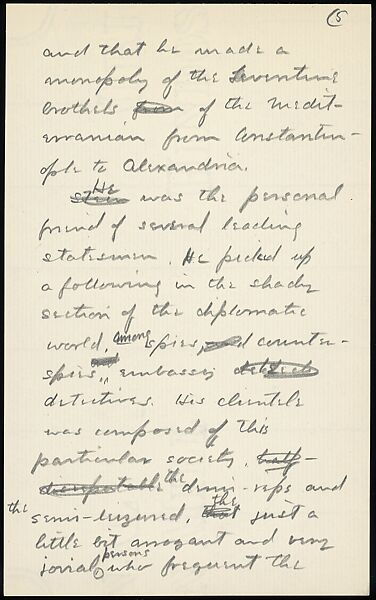 5
and that he made a
monopoly of the Leventine
brothels of the Medit-
erranian from Constantin-
ople to Alexandria.
He was the personal
friend of several leading
statesmen. He picked up
a following in the shady
section of the diplomatic
world, among spies, counter-
spies, embassy
detectives. His clientele
was composed of this
particular society, half-
the demi-reps and
the semi-leizured, the just a
little bit arrogant and very
jovial persons who frequent the